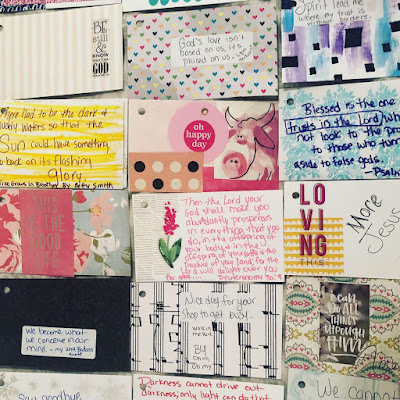 BE
still &
KNOW
that I am
GOD
God's love isn't
based on us, it's
placed on us.
Spirit lead me
where my trust is
without borders.
There had to be the dark &
muddy waters so that the
Sun could have something
to back on its flashing
glory.
Tree Grows in Brooklyn By Betty Smith
oh
happy
day
Blessed is the one
trusts in the Lord, who
not look to the pro
to those who turn
aside to false gods.
-Psalm
THIS
IS THE
GOOD
LIFE
Then the Lord your
God shall make you
abundantly prosperous
in everything that you
do, in the offspring of
your body & in the
offspring of your cattle & in the
produce of your land, for the
Lord will delight over you
for good
Deuteronomy 30:9
LO
VING
THIS
More
Jesus
We become what
we conceive in our
mind. - my
Nice day for your
Shop to get busy.
Walk in the
Park
BY
oh my
oh my
I can
do ALL
THINGS
through
HIM
Say goodbye
Darkness cannot drive out
darkness, only light can do that
We cannot